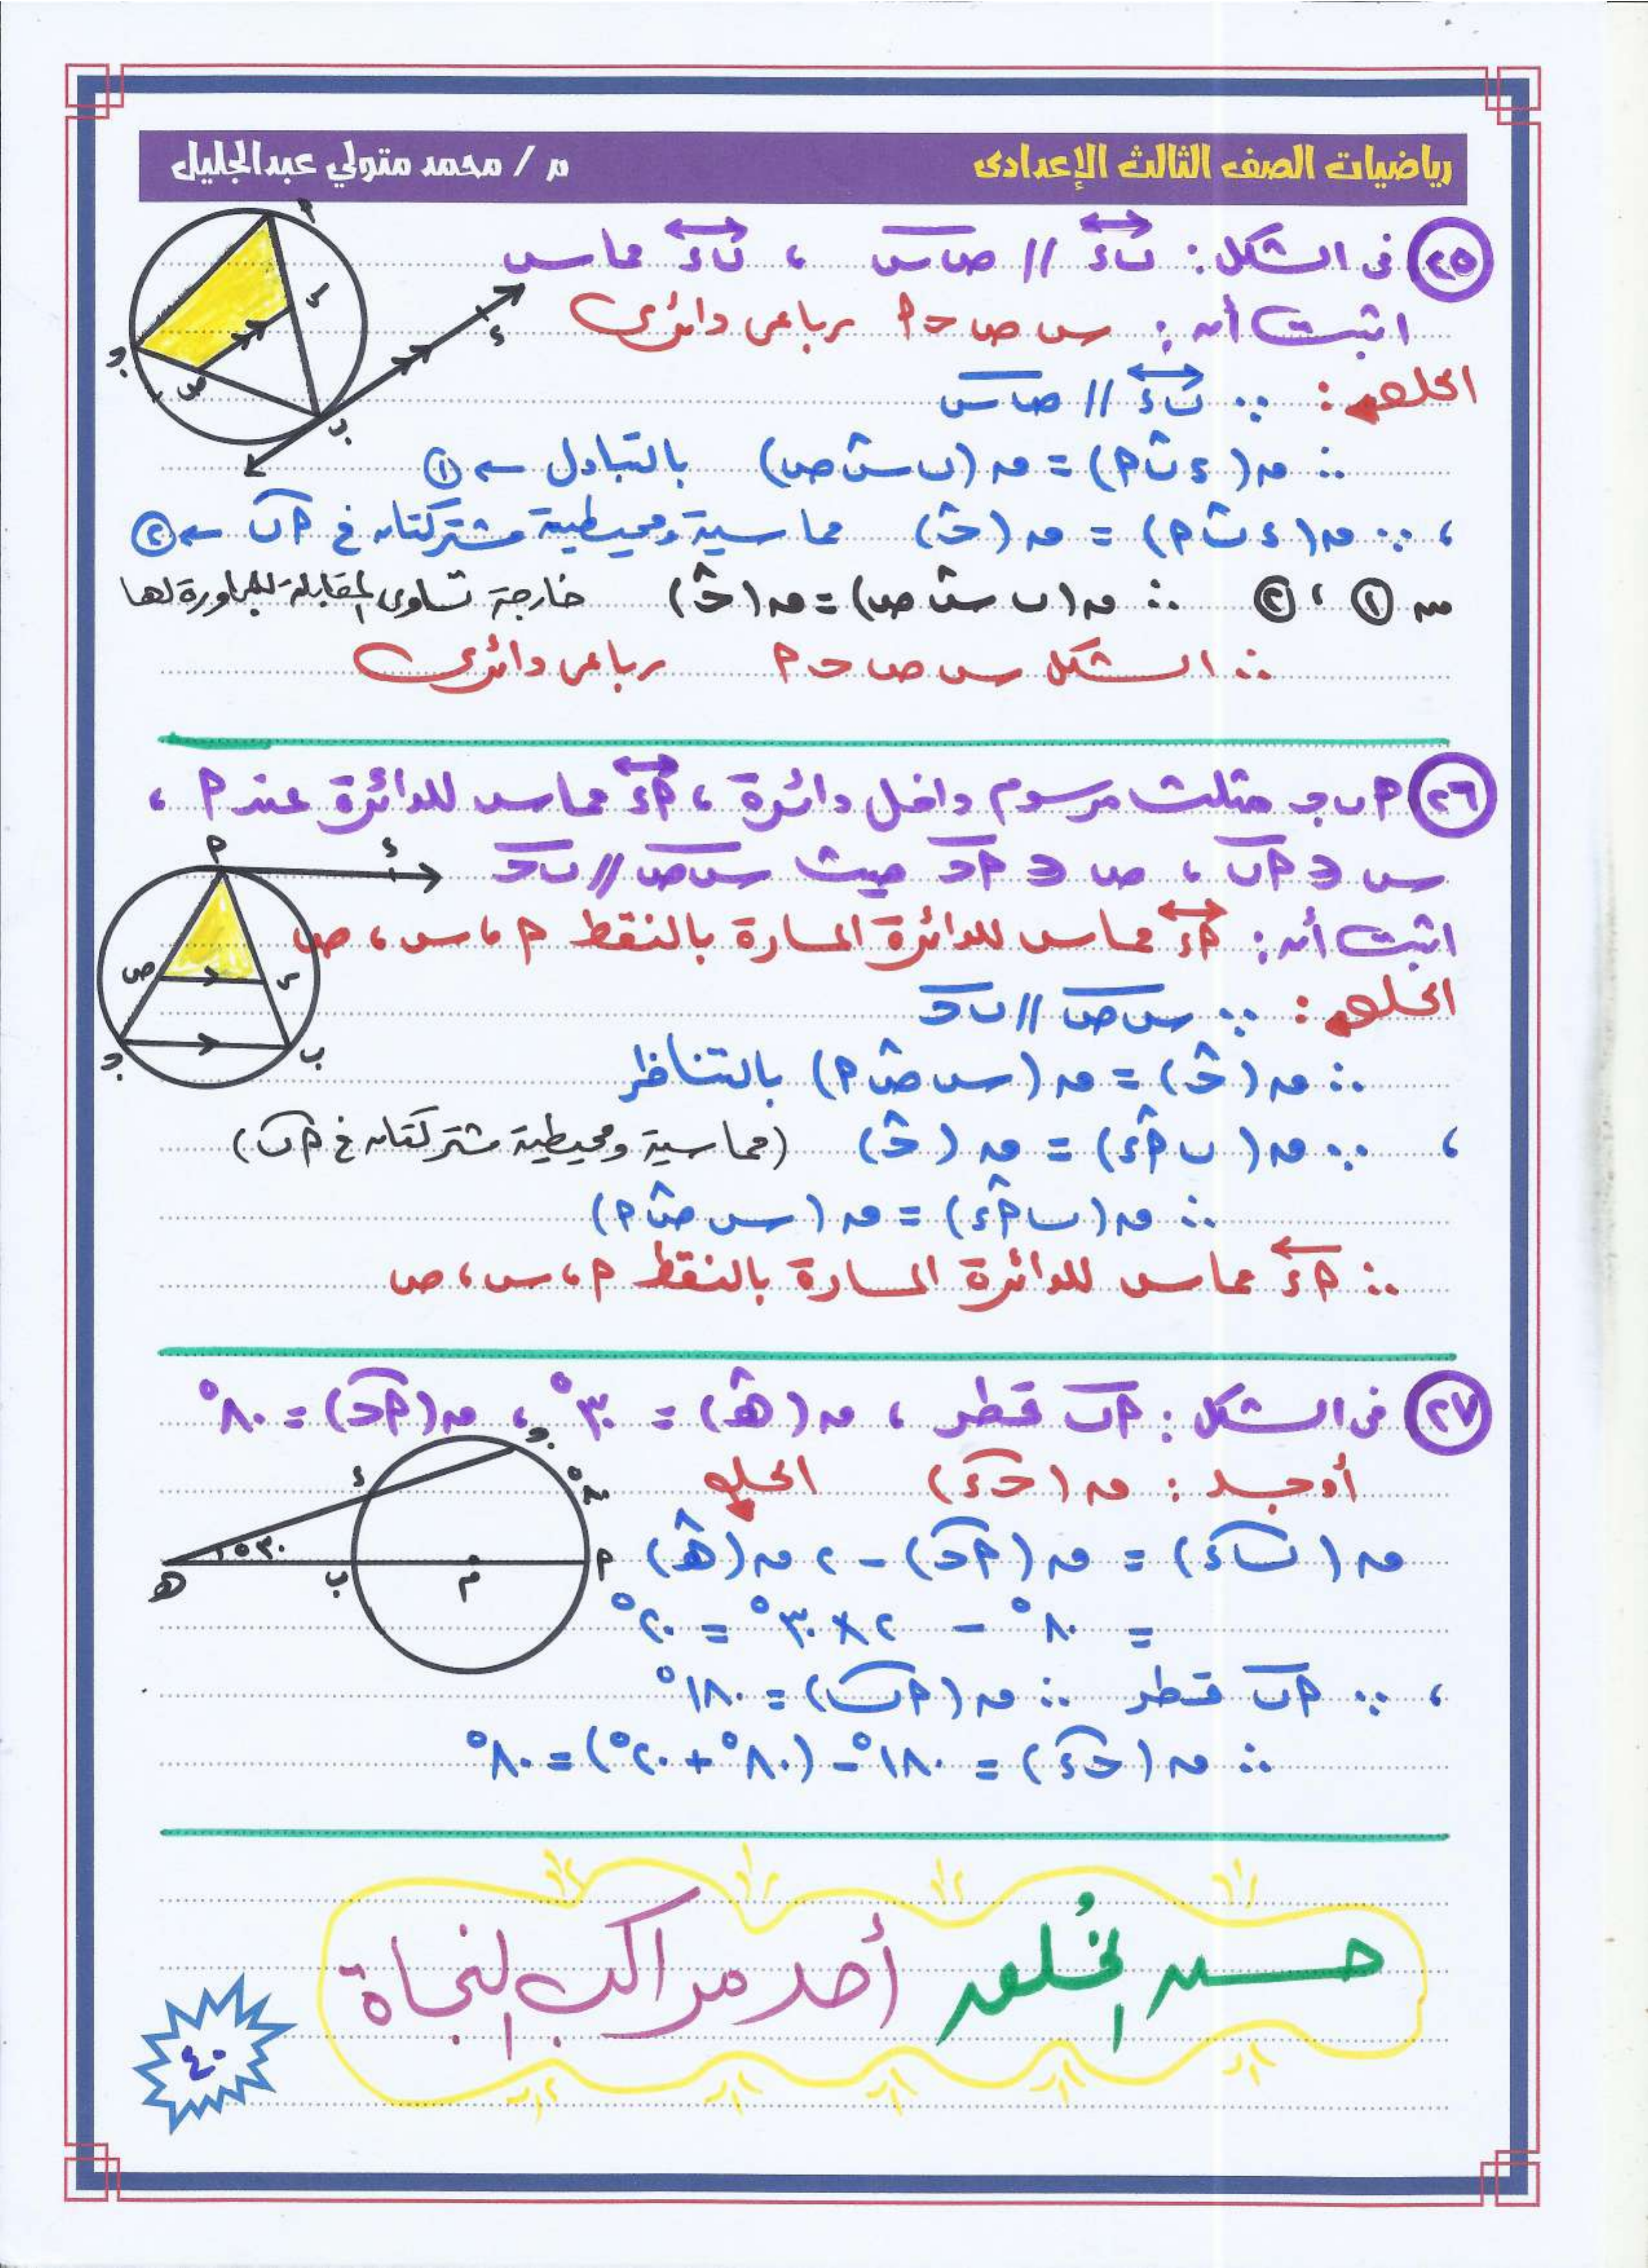 رياضيات الصف الثالث الإعدادى
م / محمد متولي عبدالجليل
٢٥ فى الشكل : ب ء // ص س ، ب ء مماس
اثبت أن : س ص ح م رباعى دائرى
الحل : ∵ ب ء // ص س
∴ ق (ء ب م) = ق (ب س ص) بالتبادل ← ١
، ∵ ق (ء ب م) = ق (ح) مماسية ومحيطية مشتركتان فى م ب ← ٢
من ١ ، ٢ ∴ ق (ب س ص) = ق (ح) خارجة تساوى المقابلة للمجاورة لها
∴ الشكل س ص ح م رباعى دائرى
٢٦ م ب ج مثلث مرسوم داخل دائرة ، م ء مماس للدائرة عند م ،
س ∈ م ب ، ص ∈ م ح حيث س ص // ب ح
اثبت أن : م ء مماس للدائرة المارة بالنقط م ، س ، ص
الحل : ∵ س ص // ب ح
∴ ق (ح) = ق (س ص م) بالتناظر
، ∵ ق (ب م ء) = ق (ح) (مماسية ومحيطية مشتركتان فى م ب)
∴ ق (ب م ء) = ق (س ص م)
∴ م ء مماس للدائرة المارة بالنقط م ، س ، ص
٢٧ فى الشكل : م ب قطر ، ق (ه) = ٣٠° ، ق (م ح) = ٨٠°
أوجد : ق (ح ء) الحل
ق (ب ء) = ق (م ح) - ٢ ق (ه)
= ٨٠° - ٢ × ٣٠° = ٢٠°
، ∵ م ب قطر ∴ ق (م ب) = ١٨٠°
∴ ق (ح ء) = ١٨٠° - (٨٠° + ٢٠°) = ٨٠°
حسن الخلق أحد مراكب النجاة
٤٠